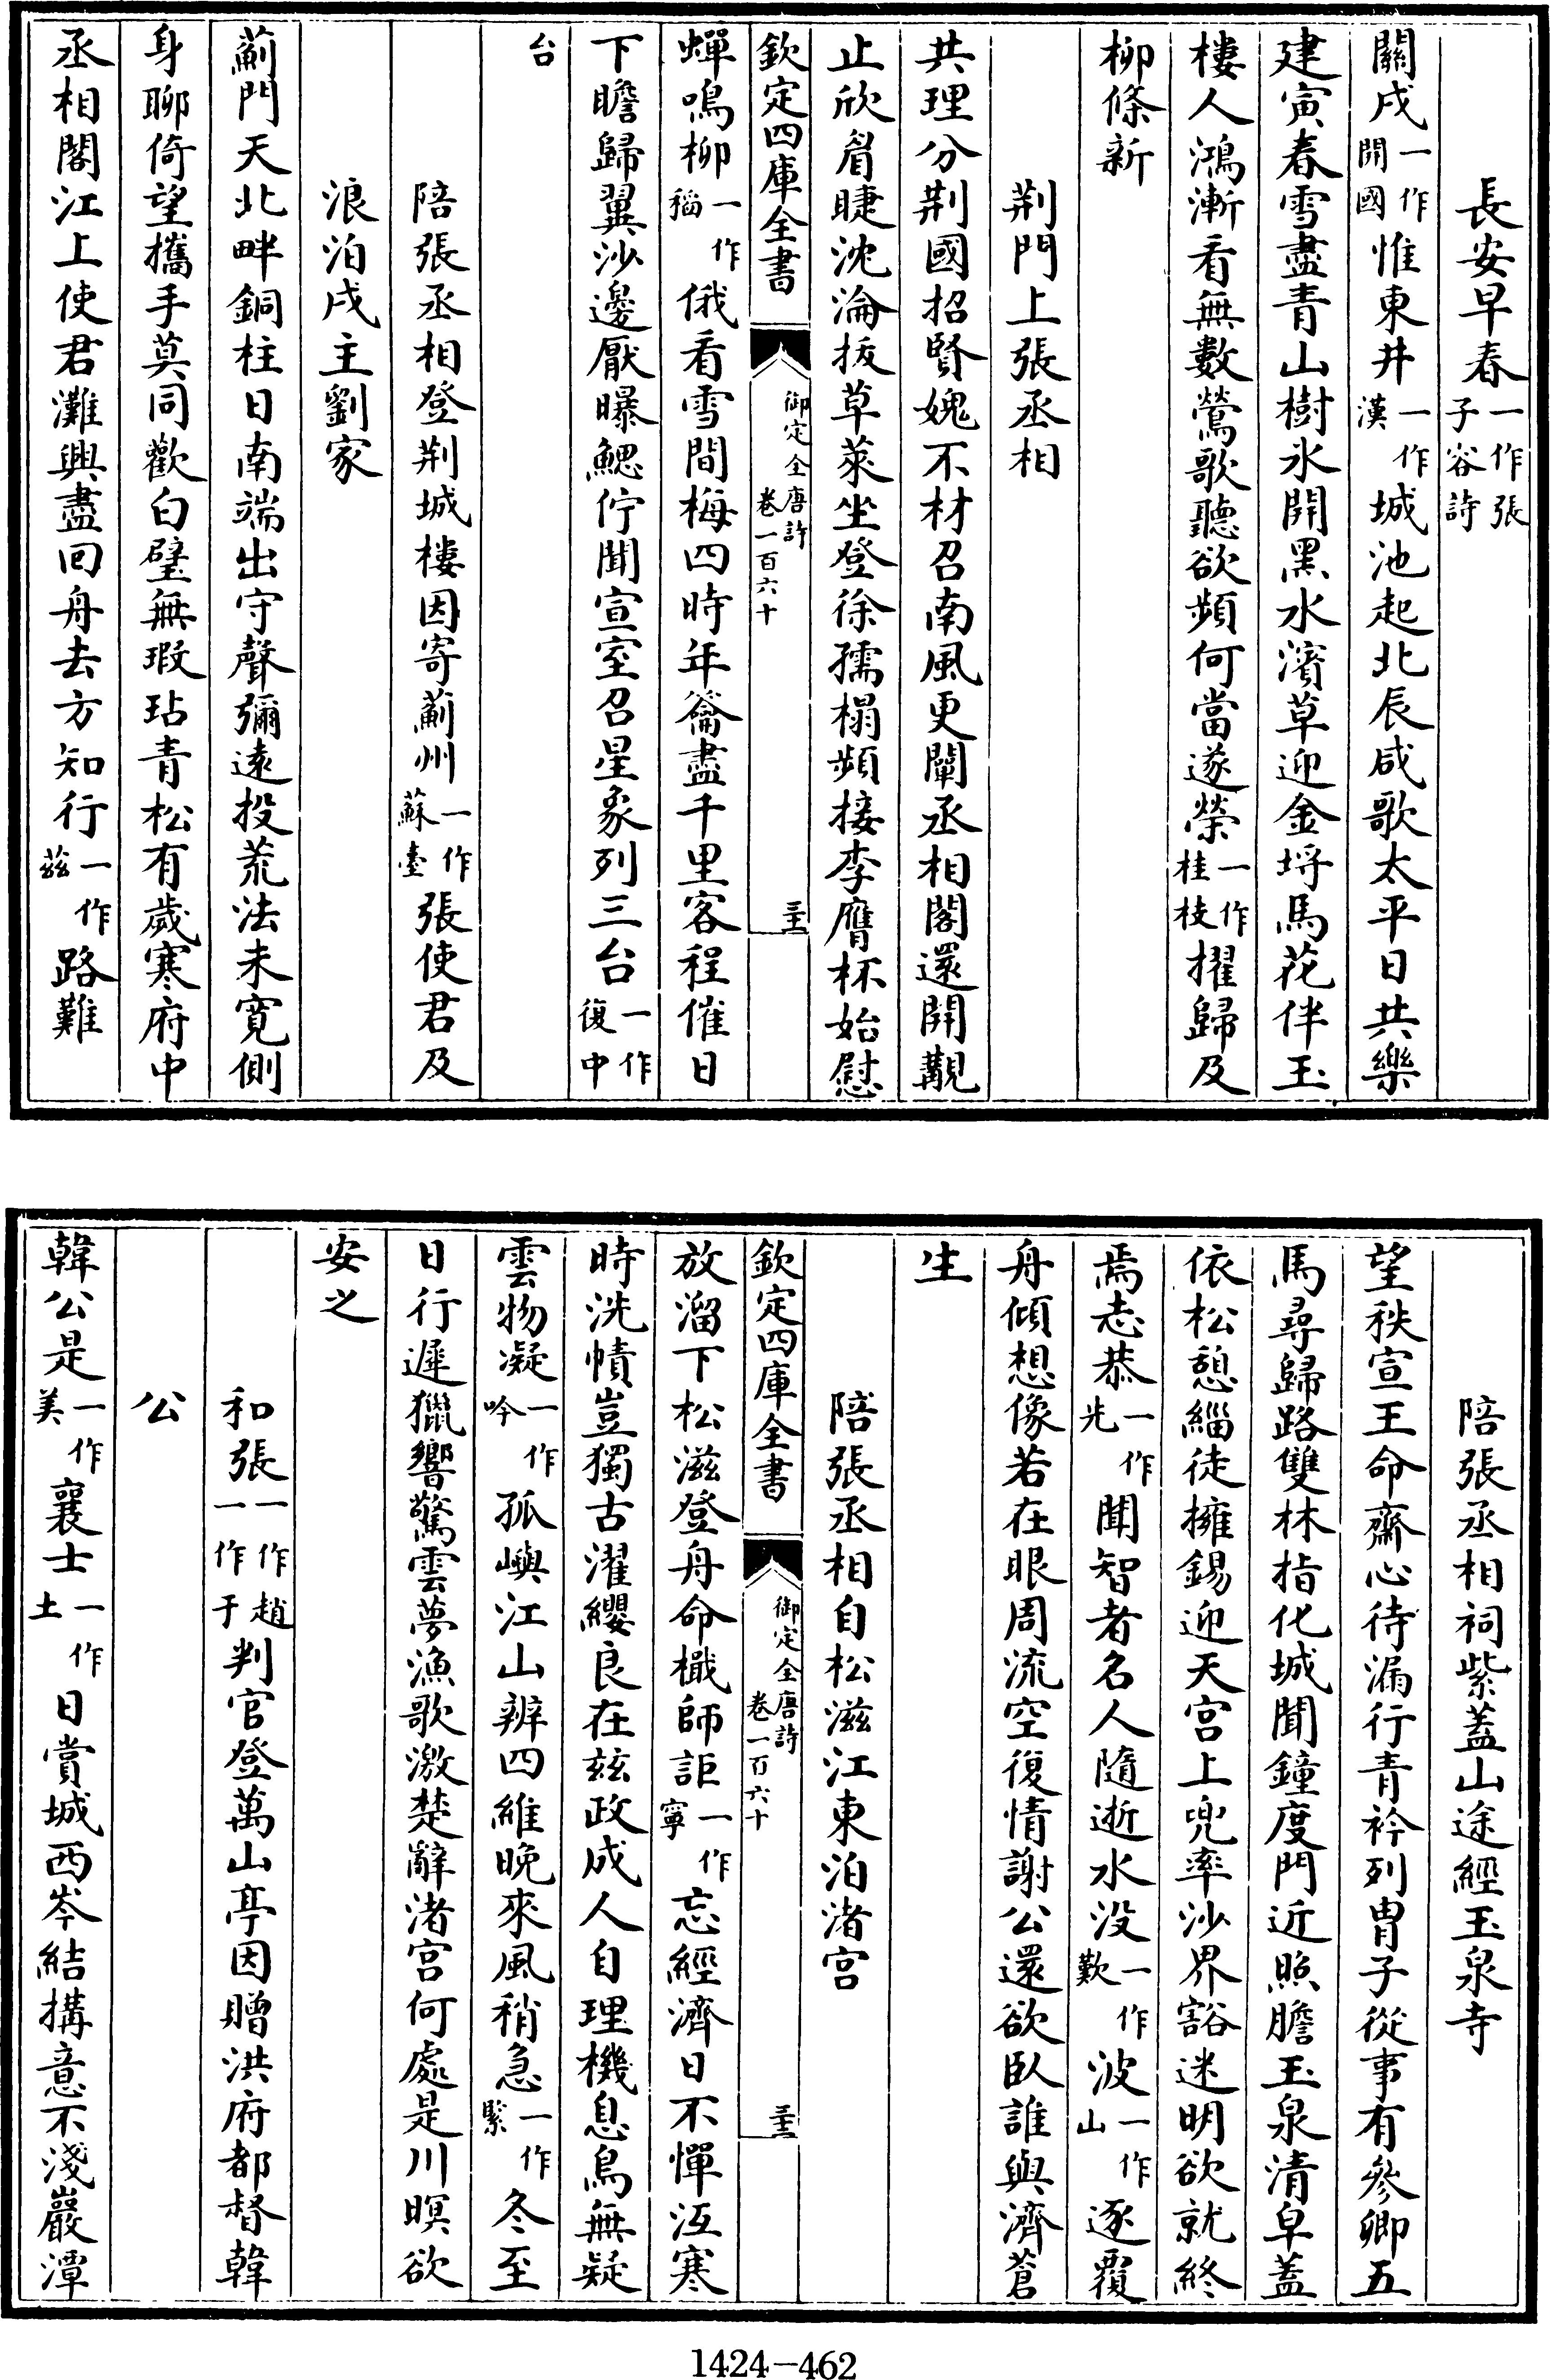 長安早春一作張子容詩
關戍一作開國惟東井一作漢城池起北辰咸歌太平日共樂
建寅春雪盡青山樹氷開黑水濱草迎金埒馬花伴玉
樓人鴻漸看無數鶯歌聽欲頻何當遂榮一作桂枝擢歸及
柳條新
荆門上張丞相
共理分荆國招賢媿不材召南風更闡丞相閣還開覯
止欣眉睫沈淪拔草萊坐登徐孺榻頻接李膺杯始慰
欽定四庫全書
御定全唐詩
卷一百六十
三十
蟬鳴柳一作稻俄看雪間梅四時年籥盡千里客程催日
下瞻歸翼沙邊厭曝鰓佇聞宣室召星象列三台一作復中
台
陪張丞相登荆城樓因寄薊州一作蘇臺張使君及
浪泊戍主劉家
薊門天北畔銅柱日南端出守聲彌遠投荒法未寬側
身聊倚望攜手莫同歡白璧無瑕玷青松有歲寒府中
丞相閣江上使君灘興盡回舟去方知行一作兹路難
陪張丞相祠紫蓋山途經玉泉寺
望秩宣王命齋心待漏行青衿列胄子從事有參卿五
馬尋歸路雙林指化城聞鐘度門近照膽玉泉清皁蓋
依松憩緇徒擁錫迎天宫上兜率沙界豁迷明欲就終
焉志恭一作先聞智者名人隨逝水没一作歎波一作山逐覆
舟傾想像若在眼周流空復情謝公還欲臥誰與濟蒼
生
陪張丞相自松滋江東泊渚宫
欽定四庫全書
御定全唐詩
卷一百六十
三十一
放溜下松滋登舟命檝師詎一作寧忘經濟日不憚沍寒
時洗幘豈獨古濯纓良在兹政成人自理機息鳥無疑
雲物凝一作吟孤嶼江山辨四維晚來風稍急一作緊冬至
日行遲獵響驚雲夢漁歌激楚辭渚宫何處是川暝欲
安之
和張一作趙一作于判官登萬山亭因贈洪府都督韓
公
韓公是一作美襄士一作土日賞城西岑結搆意不淺巖潭
1424-462